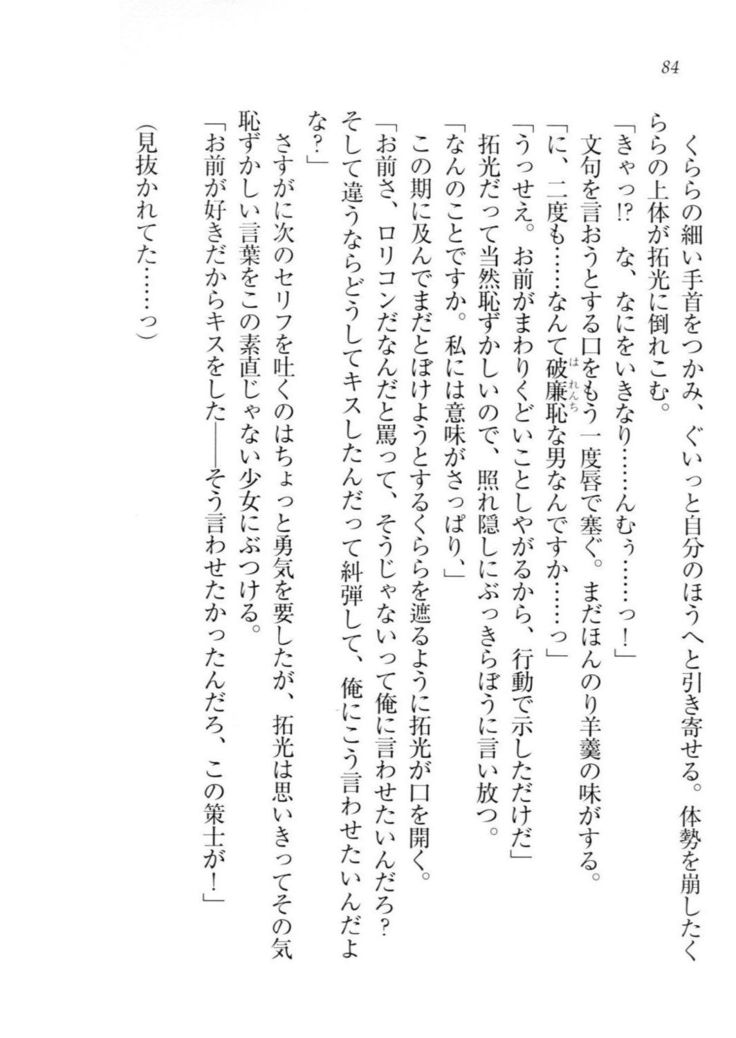 84
くららの細い手首をつかみ、ぐいっと自分のほうへと引き寄せる。体勢を崩したく
ららの上体が拓光に倒れこむ。
「きゃっ!? な、なにをいきなり……んむぅ……っ！」
文句を言おうとする口をもう一度唇で塞ぐ。まだほんのり羊羹の味がする。
「に、二度も……なんて破廉恥な男なんですか……っ」
はれんち
「うっせえ。お前がまわりくどいことしやがるから、行動で示しただけだ」
拓光だって当然恥ずかしいので、照れ隠しにぶっきらぼうに言い放つ。
「なんのことですか。私には意味がさっぱり、」
この期に及んでまだとぼけようとするくららを遮るように拓光が口を開く。
「お前さ、ロリコンだなんだと罵って、そうじゃないって俺に言わせたいんだろ？
そして違うならどうしてキスしたんだって糾弾して、俺にこう言わせたいんだよ
な？」
さすがに次のセリフを吐くのはちょっと勇気を要したが、拓光は思いきってその気
恥ずかしい言葉をこの素直じゃない少女にぶつける。
「お前が好きだからキスをした――そう言わせたかったんだろ、この策士が！」
（見抜かれてた……っ）